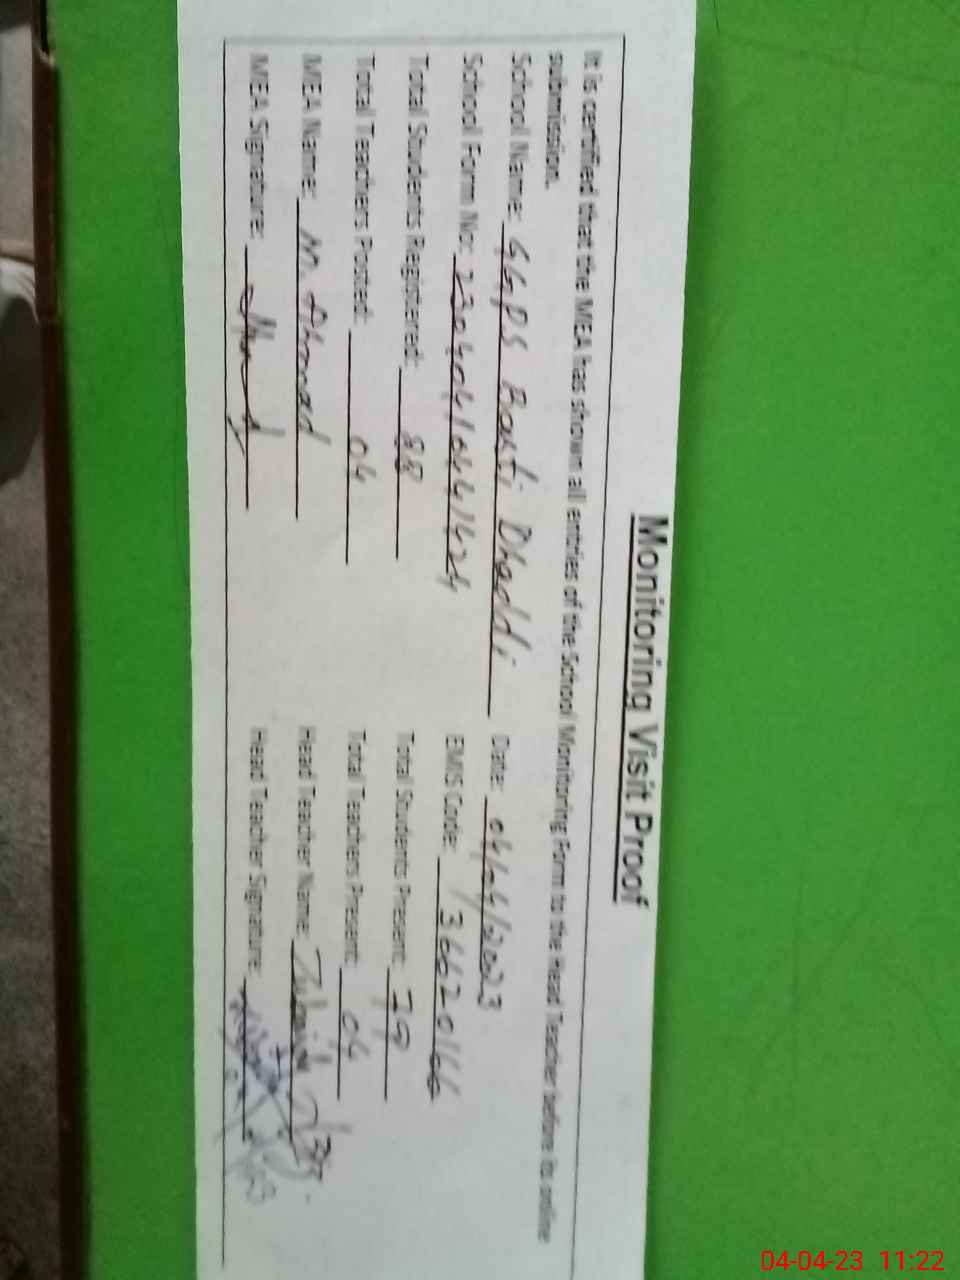 Monitoring Visit Proof
It is certified that the MEA has shown all entries of the School Monitoring Form to the Head Teacher before its online
submission.
School Name: GGPS Basti Dhaddi Date: 04/04/2023
School Form No: EMIS Code:
Total Students Registered: 88 Total Students Present: 79
Total Teachers Posted: 04 Total Teachers Present: 04
MEA Name: M. Ahmad Head Teacher Name:
MEA Signature: Head Teacher Signature:
04-04-23 11:22